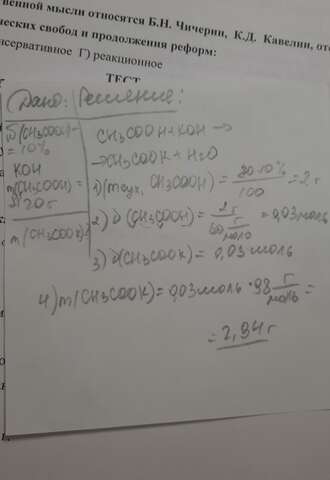 венной мысли относятся Б.Н. Чичерин, К.Д. Кавелин, от
ческих свобод и продолжения реформ:
нсервативное Г) реакционное
ТЕСТ
Дано: Решение:
ω(CH3COOH)=
=10%
KOH
m(CH3COOH)=
20г
m(CH3COOK)-?
CH3COOH+KOH →
→CH3COOK+H2O
1)(mв-ва, CH3COOH)= 20·10% / 100 = 2 г
2) ν (CH3COOH)= 2г / 60 г/моль = 0,03моль
3) ν(CH3COOK)= 0,03моль
4) m(CH3COOK)= 0,03моль · 98 г/моль =
= 2,94г